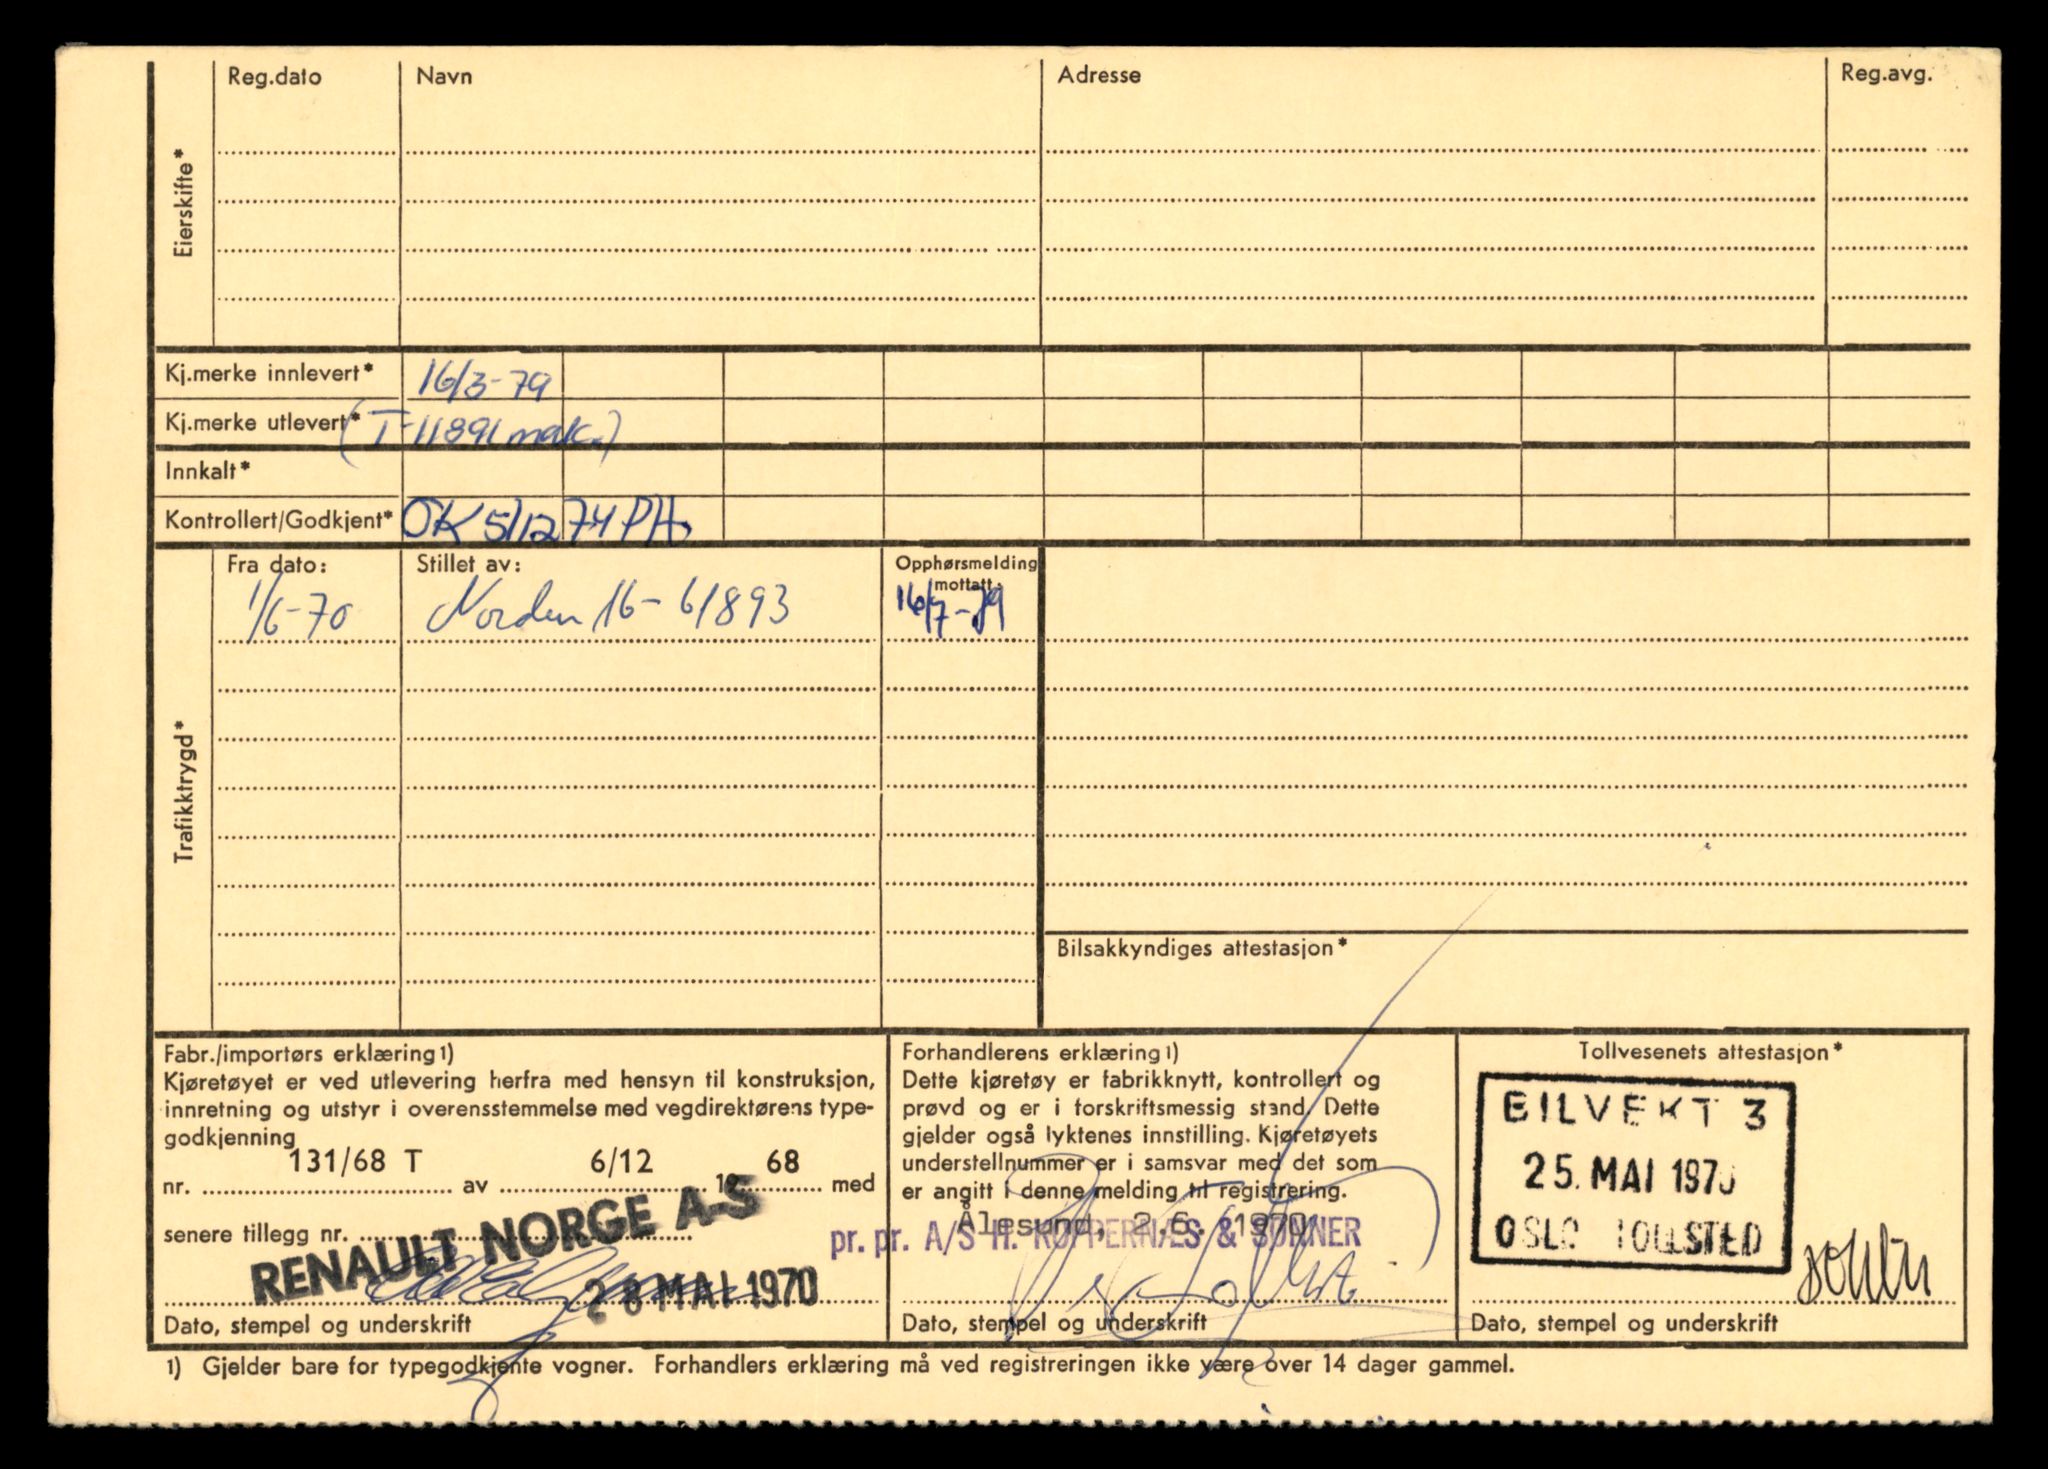 Reg.dato Navn Adresse Reg.avg.
Eierskifte*
Kj.merke innlevert* 16/3-79
Kj.merke utlevert* (T-11891 mak.)
Innkalt*
Kontrollert/Godkjent* OK 5/12 74 PH.
Trafikktrygd*
Fra dato: Stillet av: Opphørsmelding mottatt:
1/6-70 Norden 16-61893 16/7-79
Bilsakkyndiges attestasjon*
Fabr./importørs erklæring 1)
Kjøretøyet er ved utlevering herfra med hensyn til konstruksjon,
innretning og utstyr i overensstemmelse med vegdirektørens type-
godkjenning
nr. 131/68 T av 6/12 19 68 med
senere tillegg nr.
RENAULT NORGE A-S
28 MAI 1970
Dato, stempel og underskrift
Forhandlerens erklæring 1)
Dette kjøretøy er fabrikknytt, kontrollert og
prøvd og er i forskriftsmessig stand. Dette
gjelder også lyktenes innstilling. Kjøretøyets
understellnummer er i samsvar med det som
er angitt i denne melding til registrering.
Ålesund, 2.6. 1970
pr. pr. A/S H. KOPPERNÆS & SØNNER
Dato, stempel og underskrift
Tollvesenets attestasjon*
BILVEKT 3
25. MAI 1970
OSLO TOLLSTED
Dato, stempel og underskrift
1) Gjelder bare for typegodkjente vogner. Forhandlers erklæring må ved registreringen ikke være over 14 dager gammel.